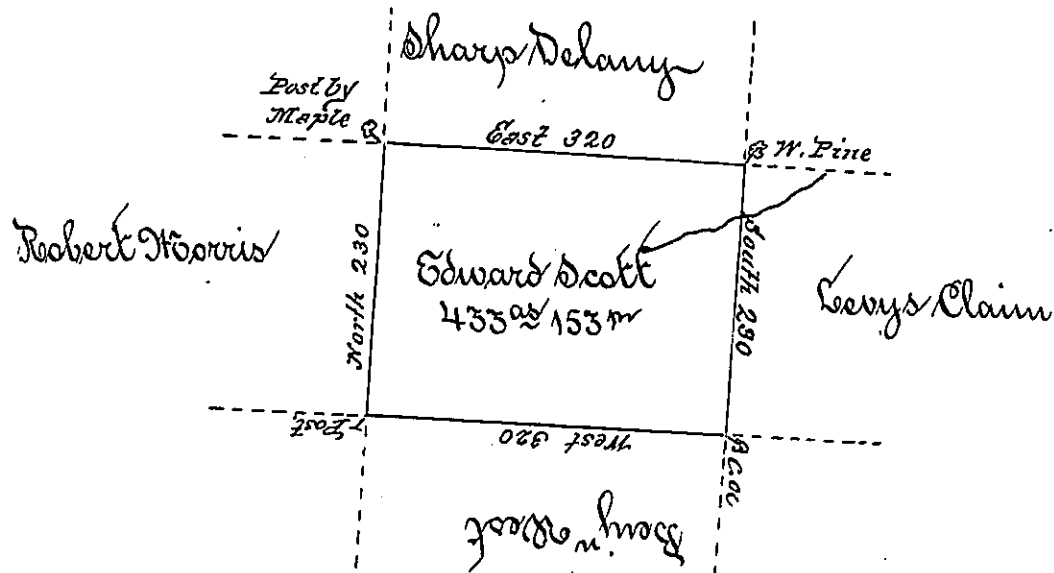 Sharp Delany
Post by
Maple
East 320
W. Pine
Robert Morris
North 230
Edward Scott
433 as 153 pr
South 230
Levys Claim
Post
West 320
Benj'n West